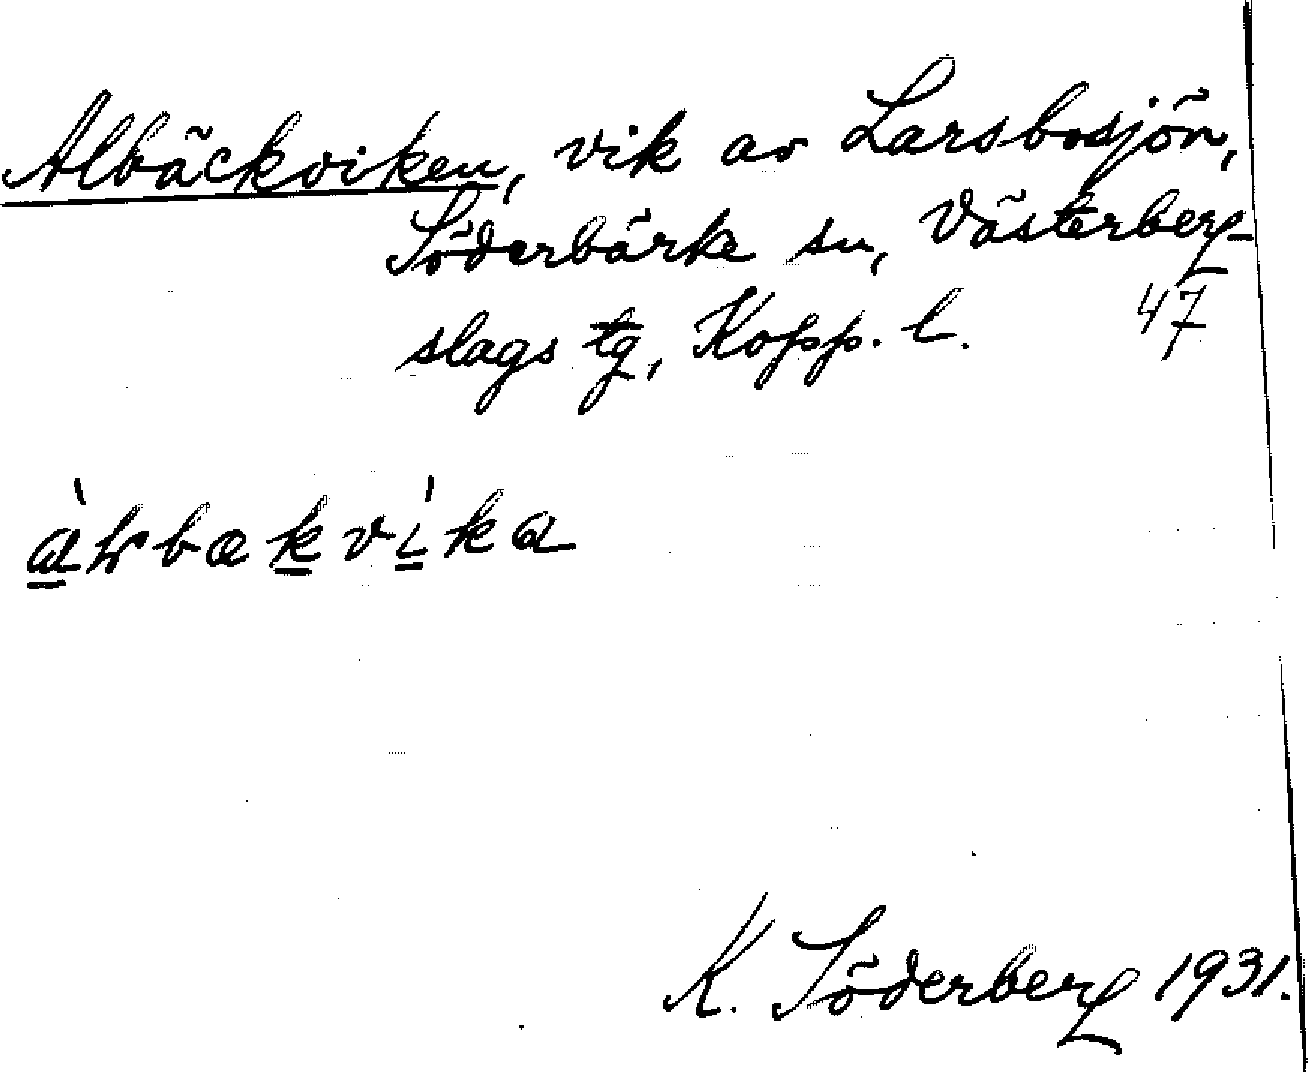 Albäckviken, vik av Larsbosjön,
Söderbärke sn, Västerberg-
slags tg, Kopp. l.
47
K. Söderberg 1931.